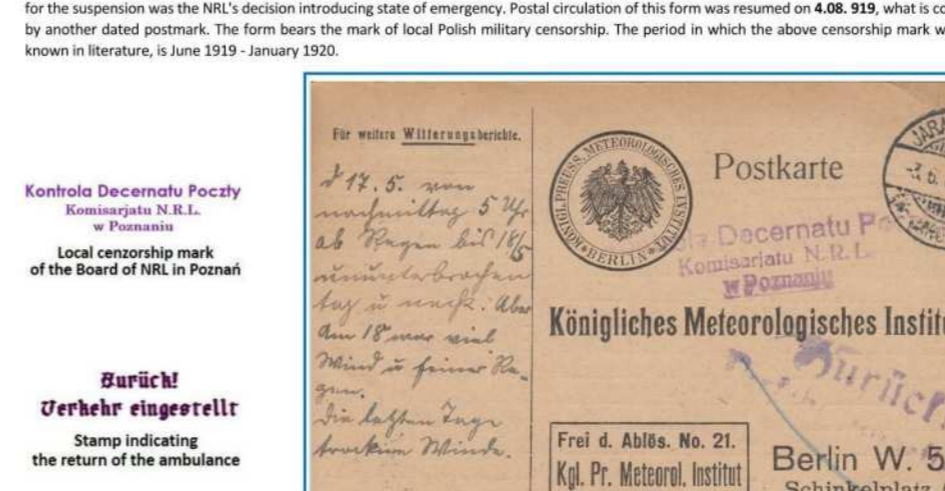 for the suspension was the NRL's decision introducing state of emergency. Postal circulation of this form was resumed on 4.08. 919, what is co
by another dated postmark. The form bears the mark of local Polish military censorship. The period in which the above censorship mark w
known in literature, is June 1919 - January 1920.
Kontrola Decernatu Poczty
Komisarjatu N.R.L.
w Poznaniu
Local cenzorship mark
of the Board of NRL in Poznań
Zurück!
Verkehr eingestellt
Stamp indicating
the return of the ambulance
Für weitere Witterungsberichte.
d 17. 5. von
nachmittag 5 Uhr
ab Regen bis 18/5
ununterbrochen
tag u nacht. Aber
am 18 war viel
Wind u feiner Re-
gen.
Die letzten Tage
trockene Winde.
KÖNIGL. PREUSS. METEOROLOGISCHES INSTITUT
BERLIN
Postkarte
JARA
Decernatu Po
Komisarjatu N.R.L.
w Poznaniu
Königliches Meteorologisches Institu
Zurück
Frei d. Ablös. No. 21.
Kgl. Pr. Meteorol. Institut
Berlin W. 5
Schinkelplatz